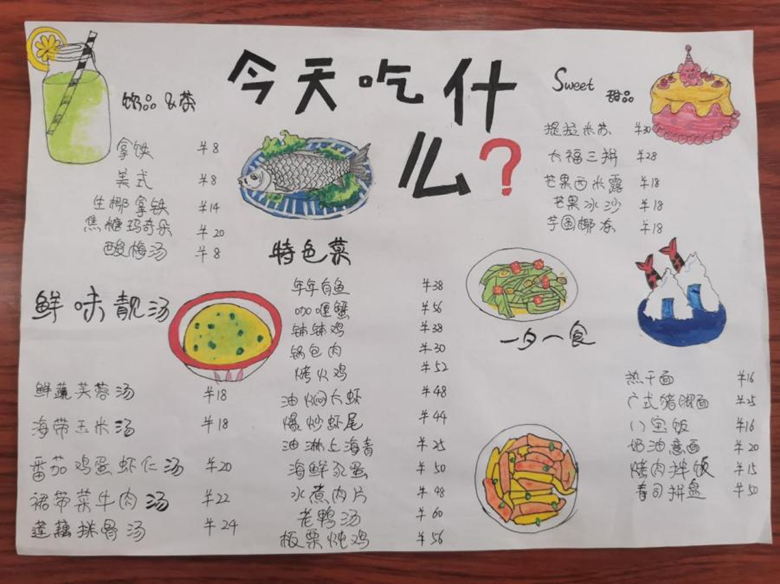 今天吃什
么?
饮品&茶
拿铁 ¥8
美式 ¥8
生椰拿铁 ¥14
焦糖玛奇朵 ¥20
酸梅汤 ¥8
Sweet 甜品
提拉米苏 ¥30
大福三拼 ¥28
芒果西米露 ¥18
芒果冰沙 ¥18
芋圆椰冻 ¥18
鲜味靓汤
鲜蔬芙蓉汤 ¥18
海带玉米汤 ¥18
番茄鸡蛋虾仁汤 ¥20
裙带菜牛肉汤 ¥22
莲藕排骨汤 ¥24
特色菜
年年有鱼 ¥38
咖喱蟹 ¥56
钵钵鸡 ¥38
锅包肉 ¥30
烤火鸡 ¥52
油焖大虾 ¥48
爆炒虾尾 ¥44
油淋上海青 ¥25
海鲜蛋 ¥50
水煮肉片 ¥48
老鸭汤 ¥60
板栗炖鸡 ¥56
一夕一食
热干面 ¥16
广式猪脚面 ¥25
八宝饭 ¥16
奶油意面 ¥20
烤肉拌饭 ¥15
寿司拼盘 ¥50